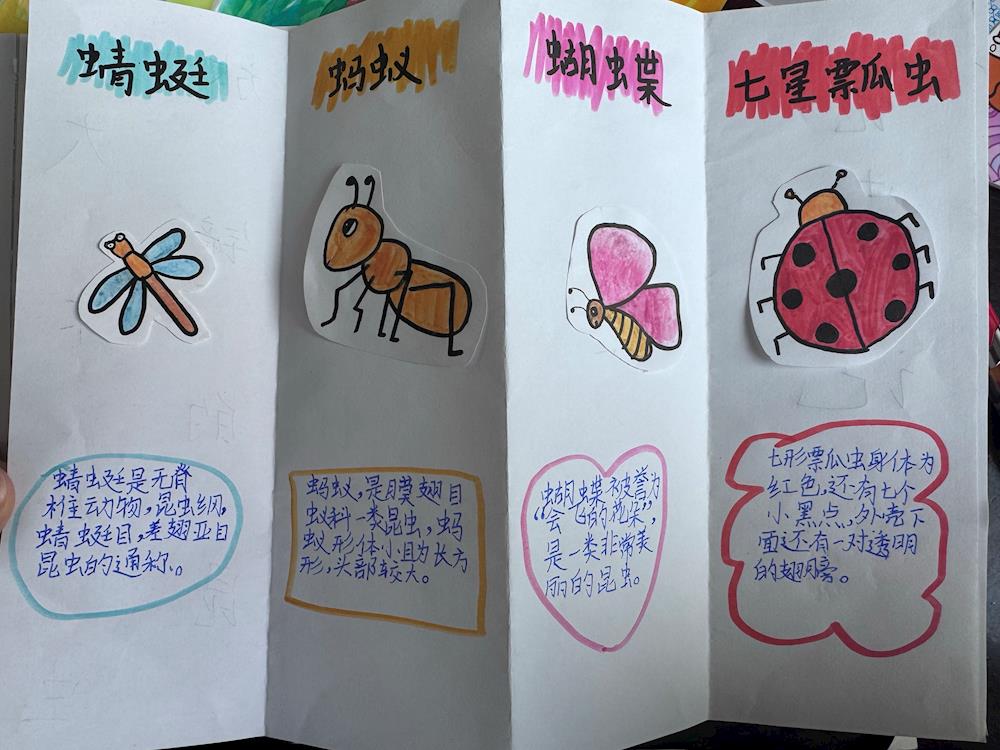 蜻蜓
蜻蜓是无脊
椎动物，昆虫纲，
蜻蜓目，差翅亚目
昆虫的通称。
蚂蚁
蚂蚁，是膜翅目
蚁科一类昆虫，蚂
蚁形体小且为长方
形，头部较大。
蝴蝶
蝴蝶被誉为
“会飞的花朵”，
是一类非常美
丽的昆虫。
七星票瓜虫
七形票瓜虫身体为
红色，还有七个
小黑点，外壳下
面还有一对透明
的翅膀。